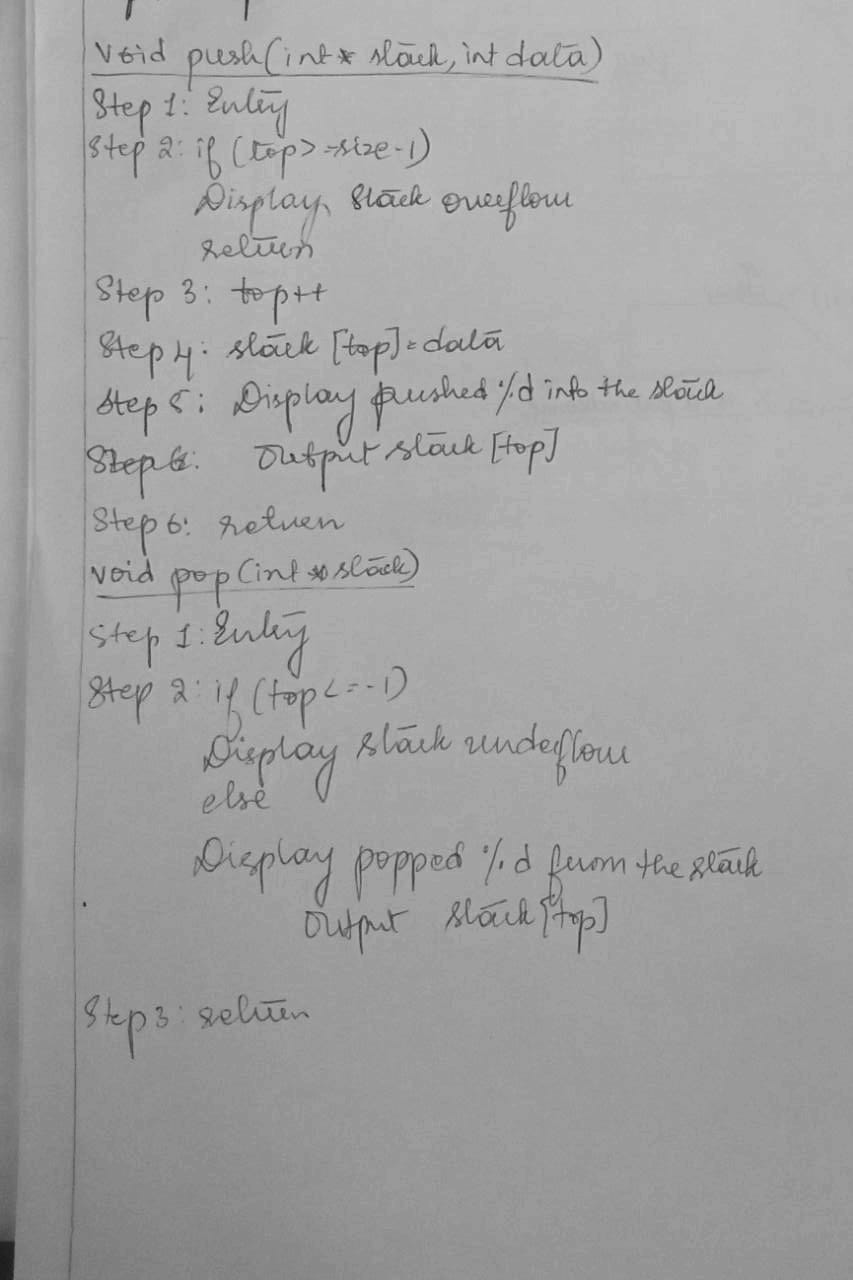 void push(int* stack, int data)
Step 1: Entry
Step 2: if (top>=size-1)
Display, Stack overflow
return
Step 3: top++
Step 4: stack [top]=data
Step 5: Display pushed %d into the stack
Step 6: Output stack [top]
Step 6: return
void pop (int * stack)
Step 1: Entry
Step 2: if (top<=-1)
Display stack underflow
else
Display popped %d from the stack
Output stack [top]
Step 3: return